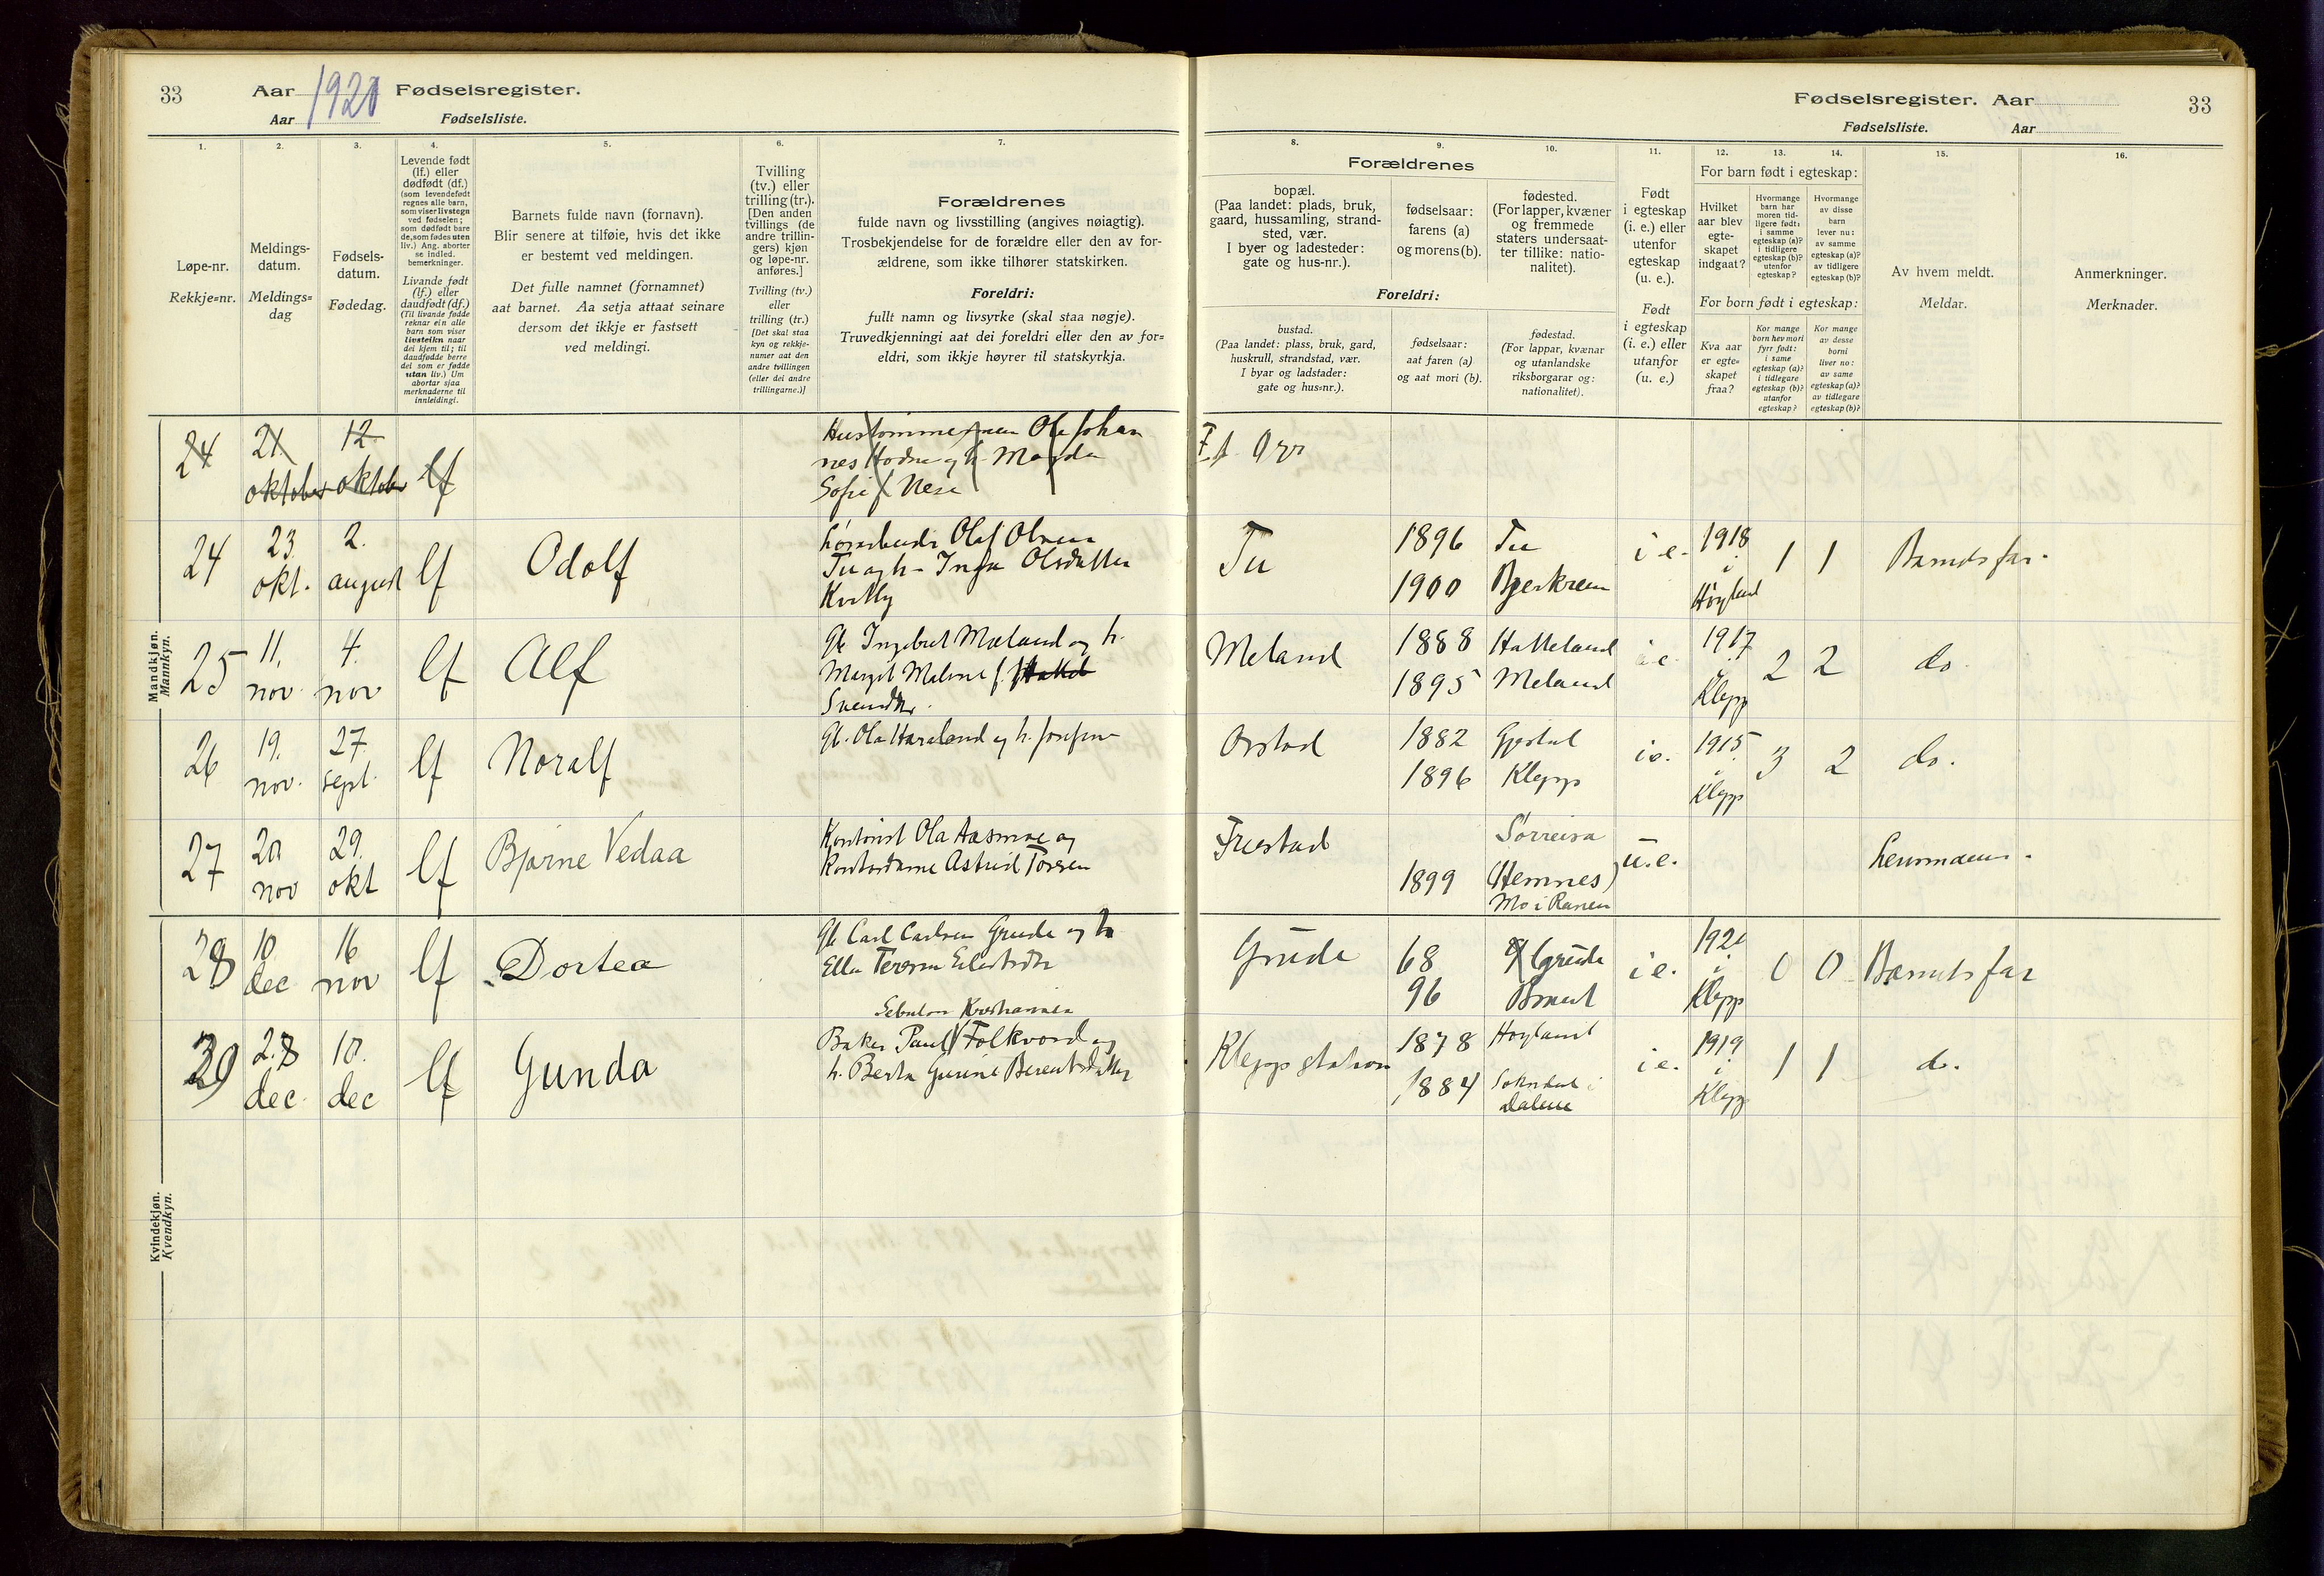 33
Aar 1920 Fødselsregister.
Aar Fødselsliste.
1.
Løpe-nr.
Rekkje=nr.
2.
Meldings-
datum.
Meldings=
dag
3.
Fødsels-
datum.
Fødedag.
4.
Levende født
(lf.) eller
dødfødt (df.)
(som levendefødt
regnes alle barn,
som viser livstegn
ved fødselen;
som dødfødt bare
de, som fødes uten
liv.) Ang. aborter
se indled.
bemerkninger.
Livande født
(lf.) eller
daudfødt (df.)
(Til livande fødde
reknar ein alle
barn som viser
livsteikn naar
dei kjem til; til
daudfødde berre
dei som er fødde
utan liv.) Um
abortar sjaa
merknaderne til
innleidingi.
5.
Barnets fulde navn (fornavn).
Blir senere at tilføie, hvis det ikke
er bestemt ved meldingen.
Det fulle namnet (fornamnet)
aat barnet. Aa setja attaat seinare
dersom det ikkje er fastsett
ved meldingi.
6.
Tvilling
(tv.) eller
trilling (tr.).
[Den anden
tvillings (de
andre trillin-
gers) kjøn
og løpe-nr.
anføres.]
Tvilling (tv.)
eller
trilling (tr.)
[Det skal staa
kyn og rekkje-
numer aat den
andre tvillingen
(eller dei andre
trillingarne.)]
7.
Forældrenes
fulde navn og livsstilling (angives nøiagtig).
Trosbekjendelse for de forældre eller den av for-
ældrene, som ikke tilhører statskirken.
Foreldri:
fullt namn og livsyrke (skal staa nøgje).
Truvedkjenningi aat dei foreldri eller den av for=
eldri, som ikkje høyrer til statskyrkja.
Fødselsregister. Aar
33
Fødselsliste. Aar
8.
Forældrenes
bopæl.
(Paa landet: plads, bruk,
gaard, hussamling, strand-
sted, vær.
I byer og ladesteder:
gate og hus-nr.).
Foreldri:
bustad.
(Paa landet: plass, bruk, gard,
huskrull, strandstad, vær.
I byar og ladstader:
gate og hus=nr.).
9.
fødselsaar:
farens (a)
og morens (b).
fødselsaar:
aat faren (a)
og aat mori (b).
10.
fødested.
(For lapper, kvæner
og fremmede
staters undersaat-
ter tillike: natio-
nalitet).
fødestad.
(For lappar, kvænar
og utanlandske
riksborgarar og:
nationalitet).
11.
Født
i egteskap
(i. e.) eller
utenfor
egteskap
(u. e.).
Født
i egteskap
(i. e.) eller
utanfor
(u. e.)
12.
13.
14.
For barn født i egteskap:
Hvilket
aar blev
egte-
skapet
indgaat?
Hvormange
barn har
moren tid-
ligere født:
i samme
egteskap (a)?
i tidligere
egteskap (b)?
utenfor
egteskap?
Hvormange
av disse
barn
lever nu:
av samme
egteskap (a)?
av tidligere
egteskap (b)?
For born født i egteskap:
Kva aar
er egte=
skapet
fraa?
Kor mange
born hev mori
fyrr født:
i same
egteskap (a)?
i tidlegare
egteskap (b)?
utanfor
egteskap?
Kor mange
av desse
borni
liver no:
av same
egteskap (a)?
av tidlegare
egteskap (b)?
15.
Av hvem meldt.
Meldar.
16.
Anmerkninger.
Merknader.
Mandkjøn.
Mannkyn.
24 21. oktober 12. oktober lf
Ole Johan
nes Hodne og h. Magda
Sofie f. Nese
24 23. okt. 2. august lf Odolf
Olaf Olsen
Tu og h. Inga Olsdatter
Tu 1896 Tu i e. 1918 i Høyland 1 1 Barnets far.
1900 Bjerkreim
25 11. nov. 4. nov lf Alf
Gb Ingebret Mæland og h.
Margit Malene f.
Svendsdtr.
Meland 1888 Hatteland i e. 1917 i Klepp 2 2 do.
1895 Meland
26 19. nov. 27. sept. lf Noralf
Gb. Ola Haraland og h.
Orstad 1882 Gjestal ie. 1915 i Klepp 3 2 do.
1896 Klepp
27 20 nov 29. okt lf Bjarne Vedaa
Kontorist Ola Aasmoe og
Kontordame Astrid Torsen
Friestad Sørreisa u.e. Lensmann.
1899 (Hemnes)
Mo i Ranen
Kvindekjøn.
Kvendkyn.
28 10 dec 16 nov lf Dortea
Gb Carl Carlsen Grude og h
Ella Terese
Grude 68 Grude i e. 1920 i Klepp 0 0 Barnets far
96 Braut
29 28 dec. 10. dec lf Gunda
Baker Paul Folkvord og
h. Berta Gurine Berentsdatter
Klepp station 1878 Høyland i e. 1919 i Klepp 1 1 do.
1884 Sokndal i
Dalene